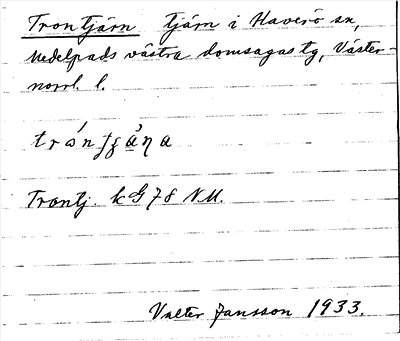 Trontjärn tjärn i Haverö sn,
Medelpads västra domsagas tg, Väster-
norrl. l.
Trontj. kG 78 NV.
Valter Jansson 1933.